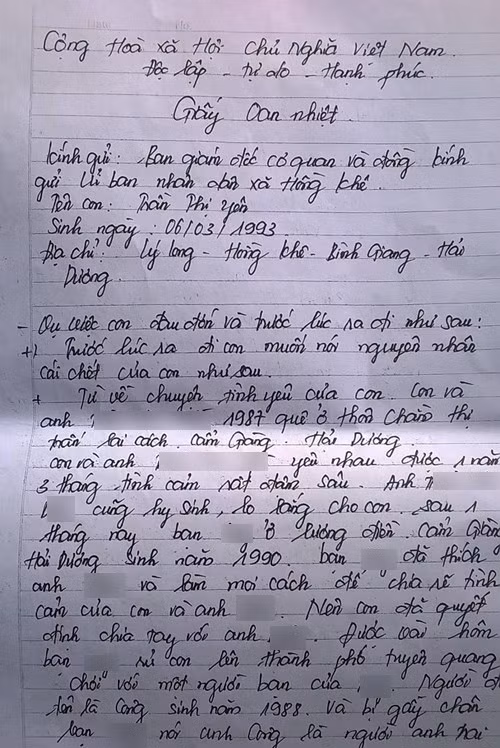 Cộng Hoà xã Hội Chủ Nghĩa Việt Nam.
Độc lập - tự do - Hạnh phúc.
Giấy Oan nhiệt.
Kính gửi: Ban giám đốc cơ quan và đồng kính
gửi Uỉ ban nhân dân xã Hồng Khê.
Tên con: Trần Thị Yên
Sinh ngày: 06/03/1993.
Địa chỉ: Lý long - Hồng Khê - Bình Giang - Hải
Dương.
- con đau đớn và trước lúc ra đi như sau:
+) Trước lúc ra đi con muốn nói nguyên nhân
cái chết của con như sau.
+ Từ về chuyện tình yêu của con. Con và
anh 1987 quê ở thôn Chằm thị
trấn lai cách. Cẩm Giàng. Hải Dương.
con và anh yêu nhau được 1 năm
3 tháng tình cảm rất đậm sâu. Anh
cũng hy sinh, lo lắng cho con. sau 1
tháng nay bạn ở lương điền. Cẩm Giàng
Hải Dương sinh năm 1990 bạn đã thích
anh và làm mọi cách để "chia sẽ tình
cảm của con và anh . Nên con đã quyết
định chia tay với anh. Được vài hôm
bạn rủ con lên thành phố tuyên quang
chơi với một người bạn của . Người đó
tên là Công sinh năm 1988. và bị gãy chân
bạn nói anh Công là người anh trai